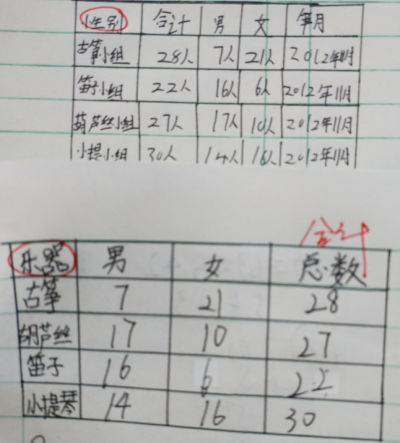 小性别 合计 男 女 年月
古筝小组 28人 7人 21人 2012年11月
笛子小组 22人 16人 6人 2012年11月
葫芦丝小组 27人 17人 10人 2012年11月
小提小组 30人 14人 16人 2012年11月
合计
乐器 男 女 总数
古筝 7 21 28
胡芦丝 17 10 27
笛子 16 6 22
小提琴 14 16 30